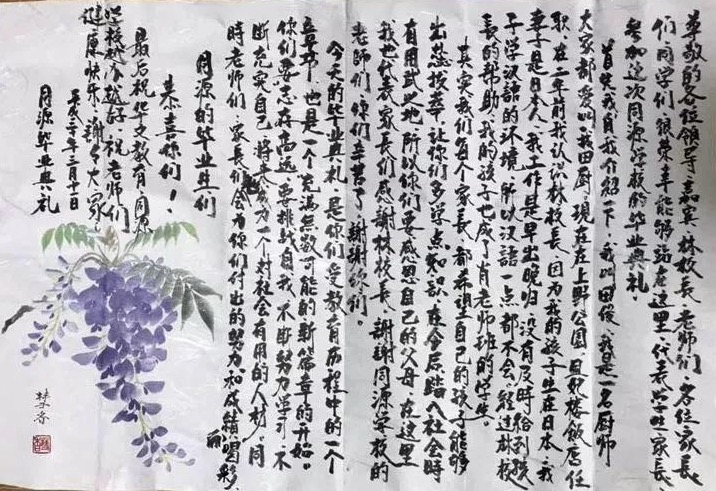 尊敬的各位领导、嘉宾、林校长、老师们、各位家长
们、同学们、很荣幸能够站在这里、代表学生家长
参加这次同源学校的毕业典礼。
首先我自我介绍一下、我叫田俊、我是一名厨师
大家都爱叫我田厨、现在在上野公园、
职、在二年前我认识林校长、因为我的孩子生在日本、我
妻子是日本人、我工作是早出晚归、没有及时给到孩
子学汉语的环境、所以汉语一点都不会、经过林校
长的帮助、我的孩子也成了肖老师班的学生。
其实我们每个家长、都希望自己的孩子能够
出类拔萃、让你们多学点知识、在今后踏入社会时
有用武之地、所以你们要感恩自己的父母、在这里
我也代表家长们感谢林校长、谢谢同源学校的
老师们、你们辛苦了、谢谢你们。
今天的毕业典礼、是你们受教育历程中的一个
章节、也是一个充满无数可能的新篇章的开始。
你们要志存高远、要挑战自我、不断努力学习、不
断充实自己、将来成为一个对社会有用的人材。同
时老师们、家长们会为你们付出的努力和成绩而喝彩
同源的毕业生们
恭喜你们！
最后祝华文教育、同源
学校越办越好、祝老师们
健康快乐、谢谢大家。
三月十一日
同源毕业典礼